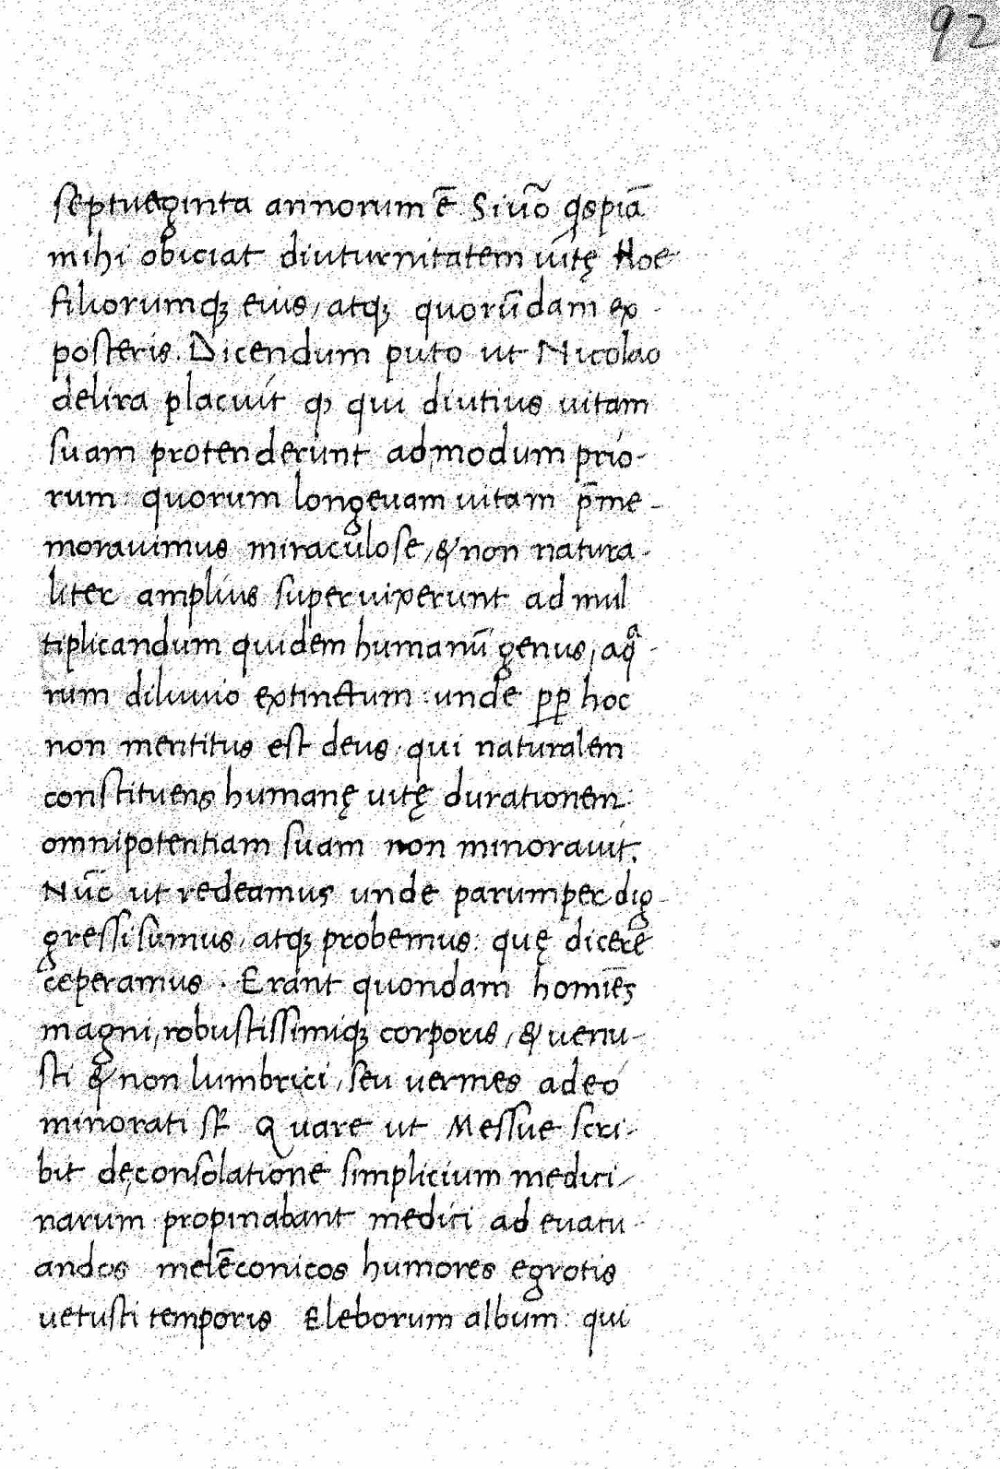 92
septuaginta annorum ē. Si uo᷈ q̄spiā
mihi obiciat diuturnitatem uitę Noe
filiorumq; eius, atq; quorūdam ex
posteris. Dicendum puto ut Nicolao
delira placuit ꝙ qui diutius uitam
suam protenderunt admodum prio-
rum: quorum longeuam uitam p̄me-
morauimus miraculose, & non natura-
liter amplius superuixerunt ad mul
tiplicandum quidem humanū genus, aqͣ-
rum diluuio extinctum: unde ꝓpꝑ hoc
non mentitus est deus, qui naturalem
constituens humanę uitę durationem
omnipotentiam suam non minorauit.
Nūc ut redeamus unde parumper dig-
gressi sumus, atq; probemus: quę dicere
ceperamus. Erant quondam homīes
magni, robustissimiq; corporis, & uenu-
sti & non lumbrici, seu uermes adeo
minorati st̄. Quare ut Messue scri-
bit de consolatione simplicium medici-
narum propinabant medici ad euacu-
andos melēconicos humores egrotis
uetusti temporis Eleborum album: qui